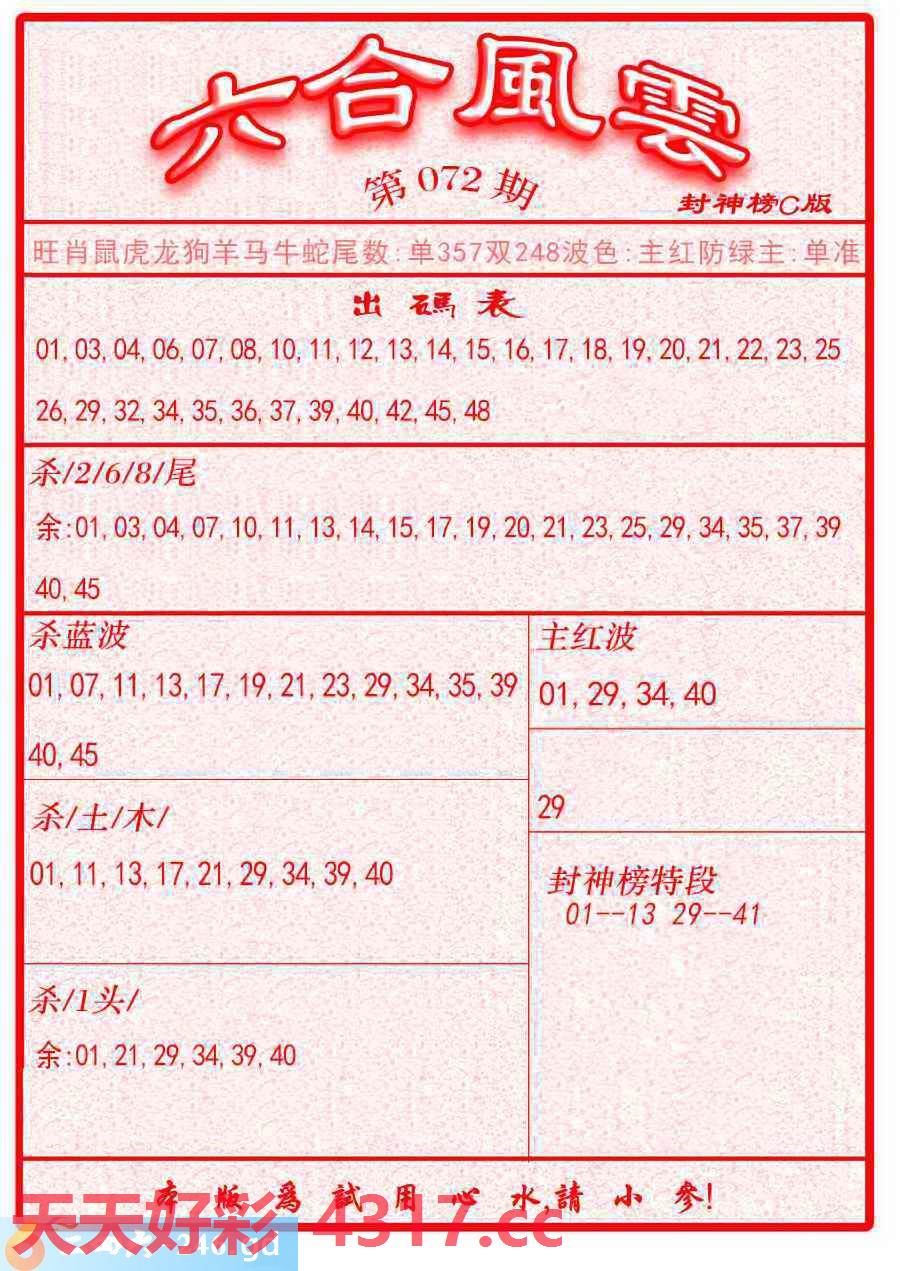 六合風雲
第072期
封神榜C版
旺肖鼠虎龙狗羊马牛蛇尾数:单357双248波色:主红防绿主:单准
出碼表
01,03,04,06,07,08,10,11,12,13,14,15,16,17,18,19,20,21,22,23,25
26,29,32,34,35,36,37,39,40,42,45,48
杀/2/6/8/尾
余:01,03,04,07,10,11,13,14,15,17,19,20,21,23,25,29,34,35,37,39
40,45
杀蓝波
01,07,11,13,17,19,21,23,29,34,35,39
40,45
主红波
01,29,34,40
29
杀/土/木/
01,11,13,17,21,29,34,39,40
封神榜特段
01--13 29--41
杀/1头/
余:01,21,29,34,39,40
本版爲試用心水,請小參!
天天好彩 4317.cc